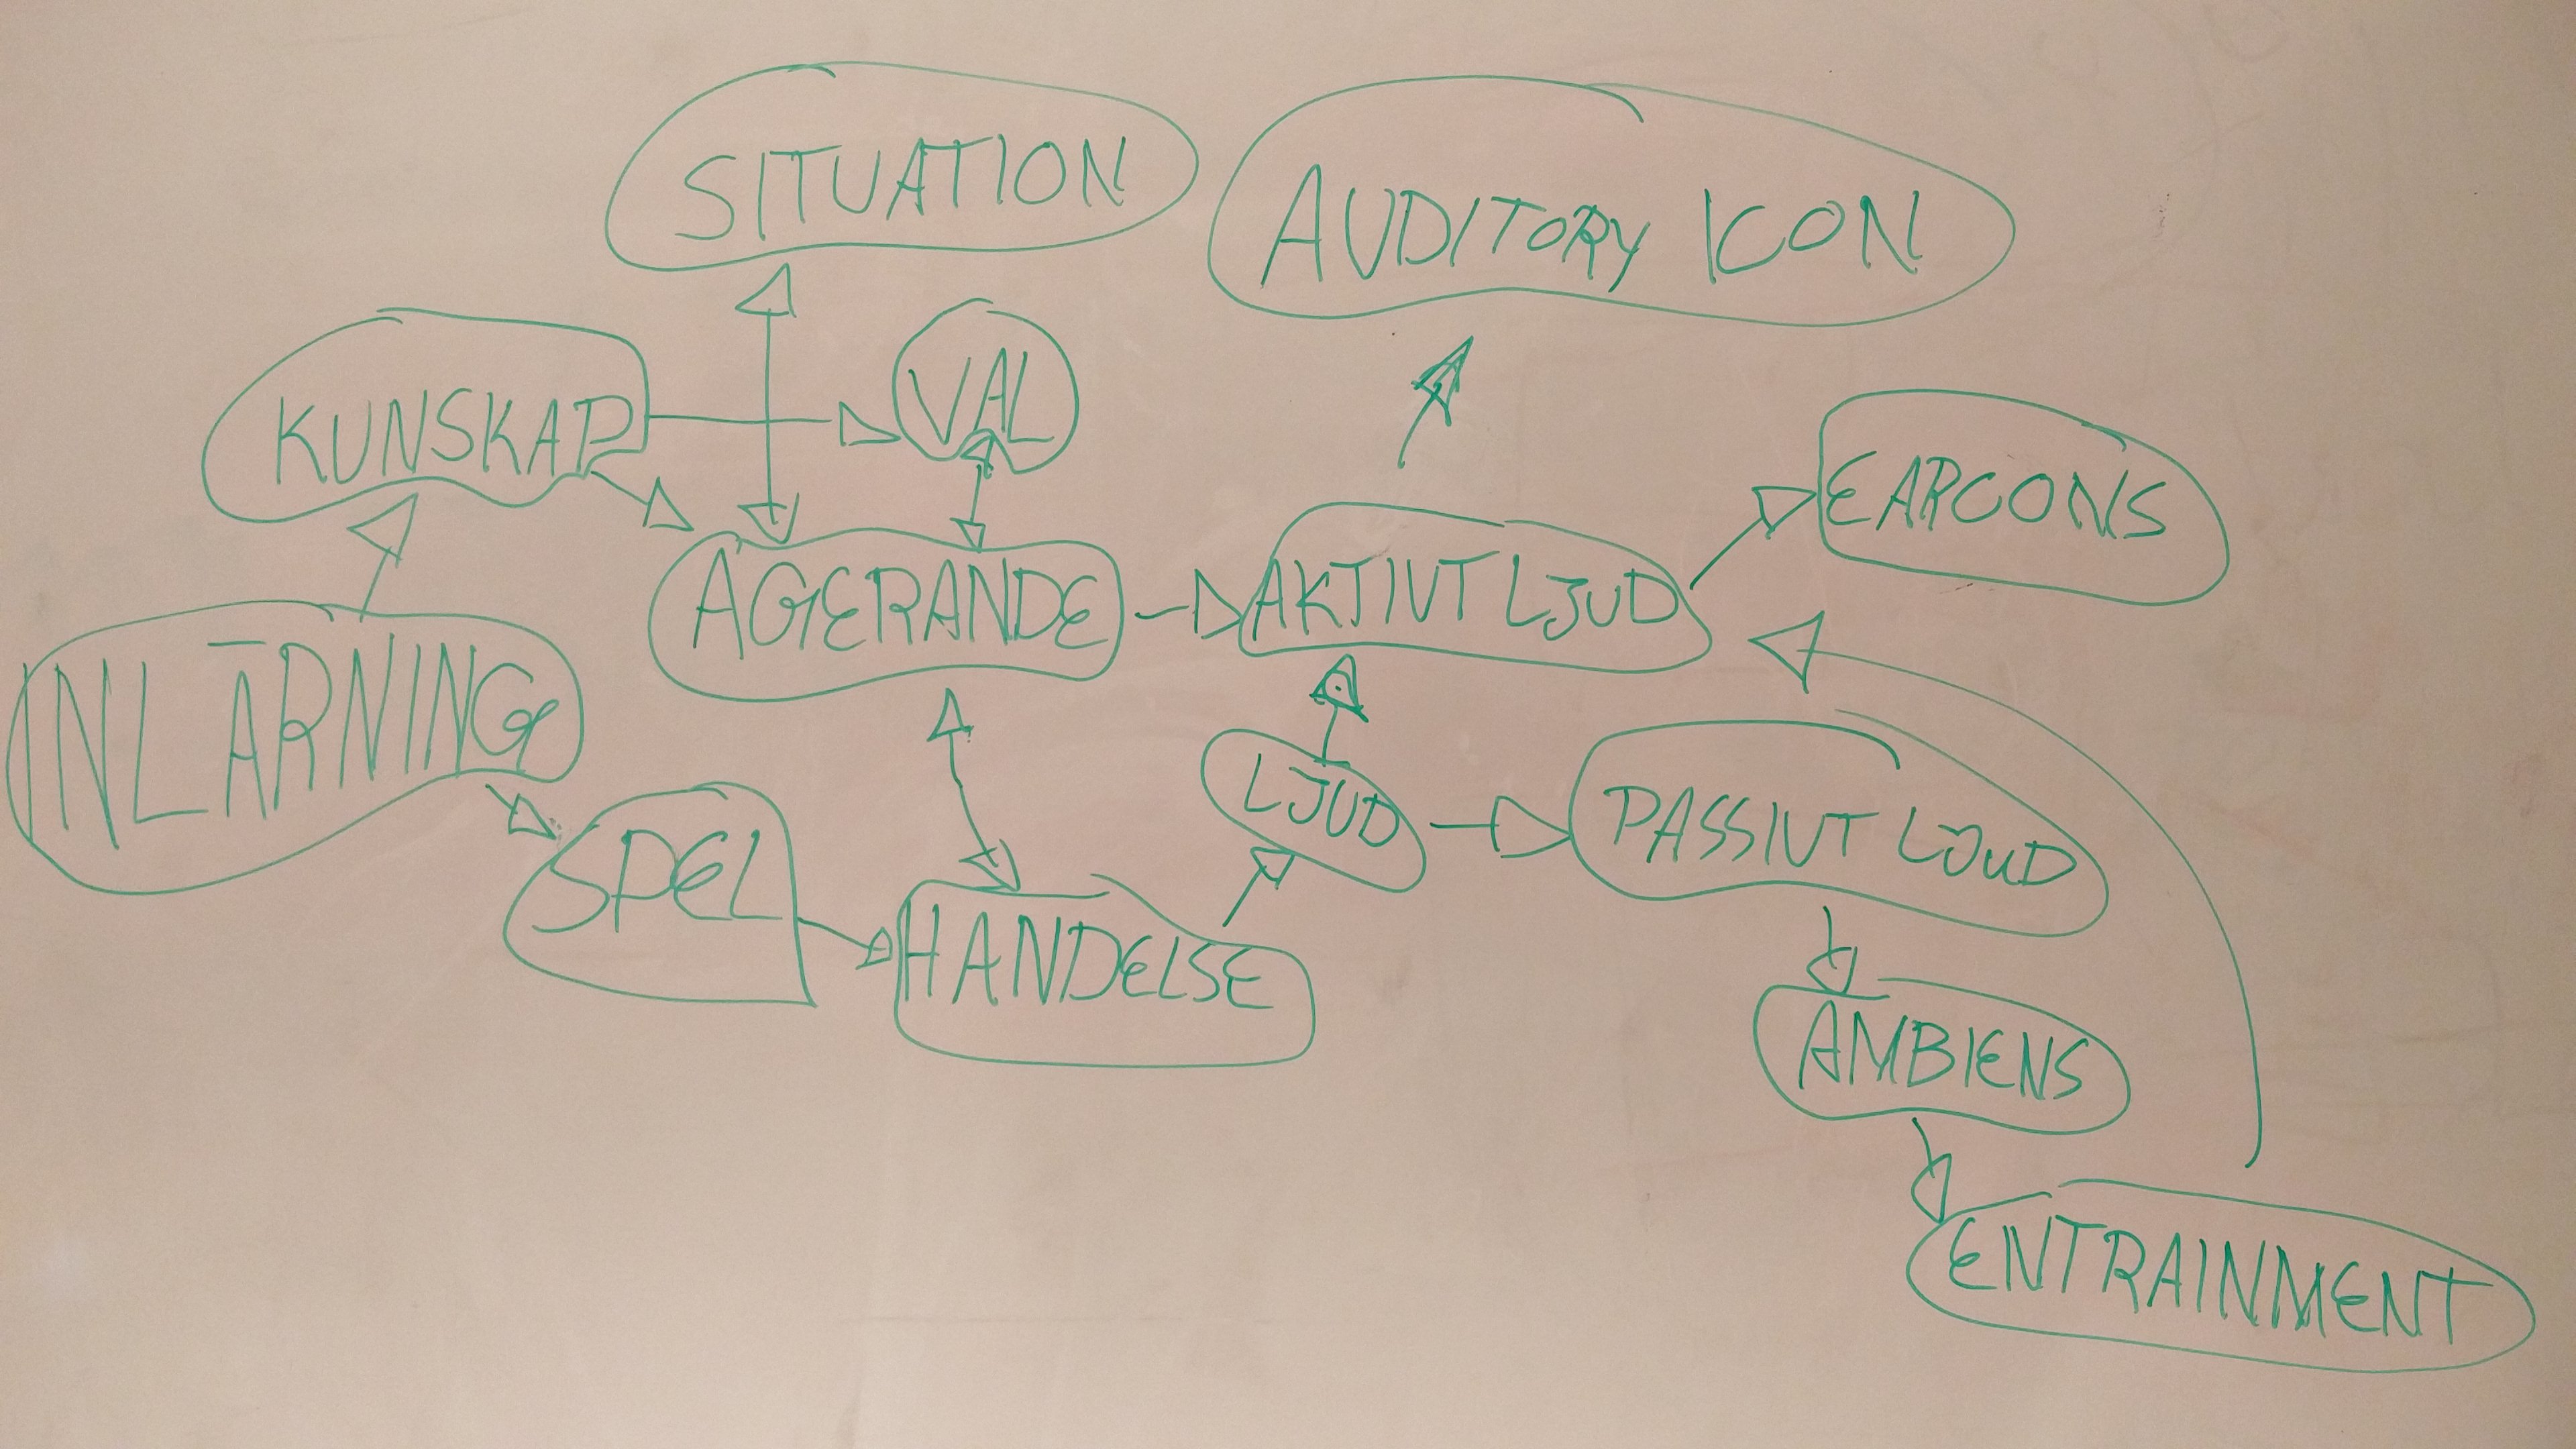 SITUATION
AUDITORY ICON
KUNSKAP
VAL
EARCONS
AGERANDE
AKTIVT LJUD
INLÄRNING
LJUD
PASSIVT LJUD
SPEL
HANDELSE
AMBIENS
ENTRAINMENT